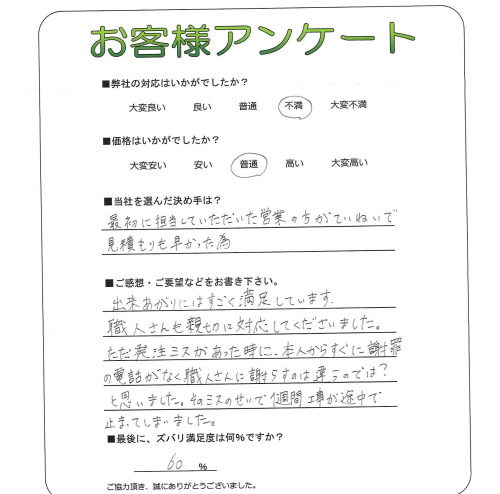 お客様アンケート
■弊社の対応はいかがでしたか？
大変良い　良い　普通　不満　大変不満
■価格はいかがでしたか？
大変安い　安い　普通　高い　大変高い
■当社を選んだ決め手は？
最初に担当していただいた営業の方がていねいで
見積もりも早かった為
■ご感想・ご要望などをお書き下さい。
出来あがりにはすごく満足しています.
職人さんも親切に対応してくださいました。
ただ発注ミスがあった時に、本人からすぐに謝罪
の電話がなく職人さんに謝らすのは違うのでは?
と思いました。そのミスのせいで1週間工事が途中で
止まってしまいました。
■最後に、ズバリ満足度は何％ですか？
60 ％
ご協力頂き、誠にありがとうございました。